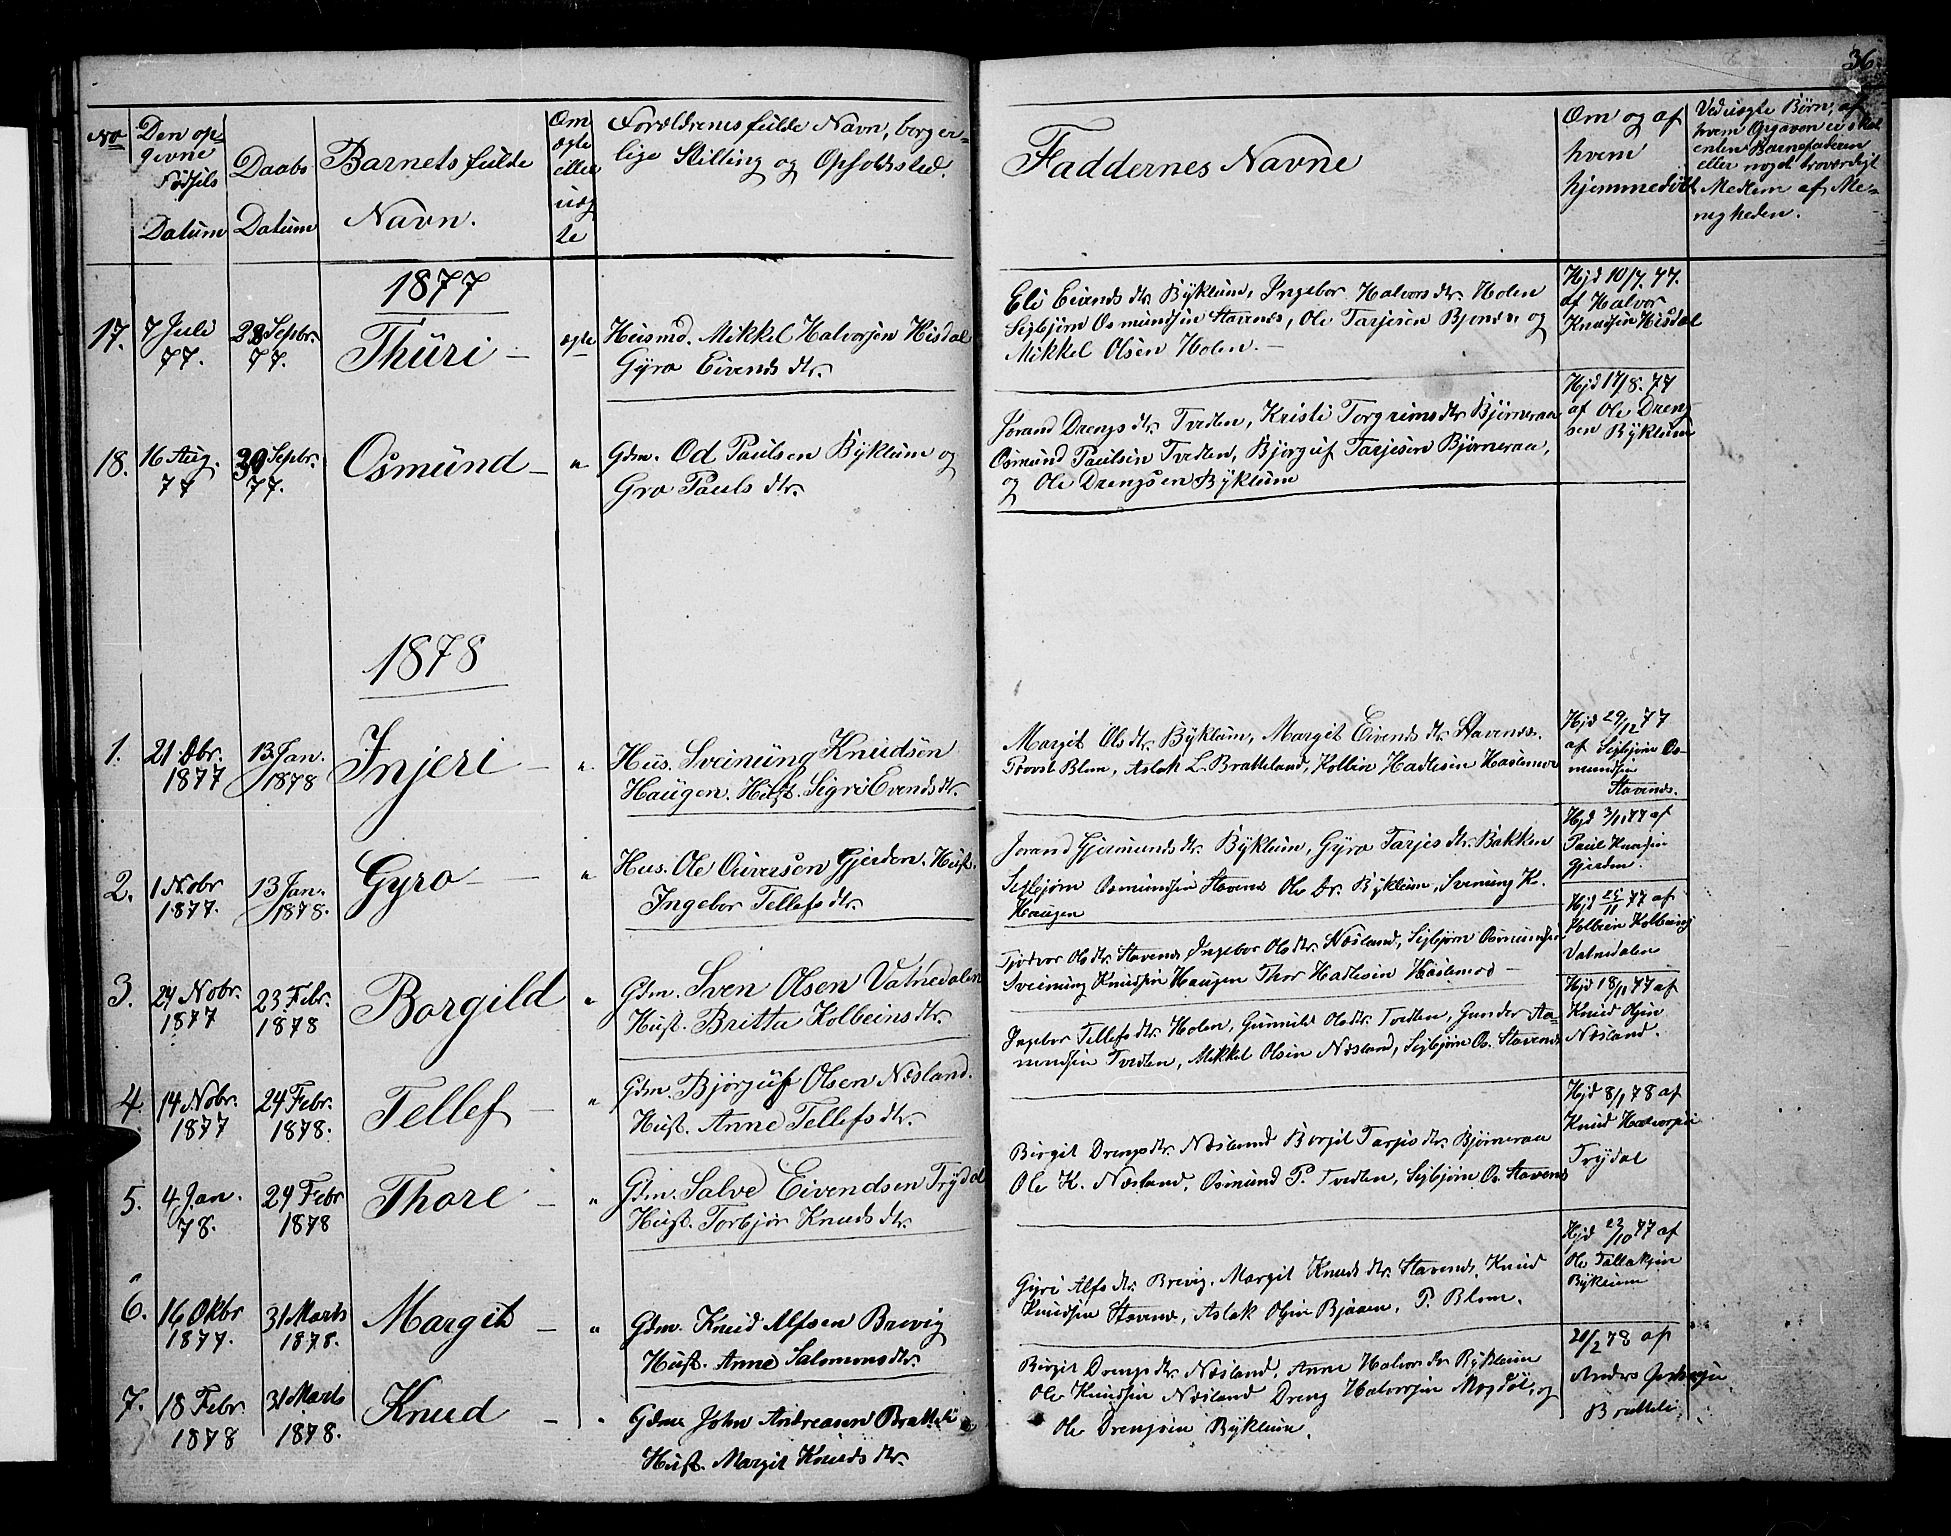 36.
No
Den op-
givne
Fødsels
Datum
Daabs
Datum
Barnets fulde
Navn.
Om
ægte
eller
uæg
te
Forældrenes fulde Navn, borger-
lige Stilling og Opholdssted.
Faddernes Navne
Om og af
hvem
hjemmedöbt
Veduægte Børn, af
hvem Opgaven ei skal
enten Barnefaderen
eller noget troværdigt
Medlem af Me-
nigheden.
1877
17.
7 Juli
77.
Septbr.
77.
Thüri –
ægte
Husmd. Mikkel Halvorsen Hisdal
Gyro Eivends dtr.
Eli Eivends dtr. Býklum, Ingebor Halvors dtr. Holen
Seibjørn Osmundsen Stavenes, Ole Tarjesen Bjones og
Mikkel Olsen Holen. –
Hjd 10/7. 77.
af Halvor
Knudsen Hisdal
18.
16 Aug.
77
Septbr.
77.
Osmünd –
"
Gdm. Od Paulsen Býklum og
Gro Pauls dtr.
Jorand Drengs dtr. Tveten, Kristi Torgrims dtr. Bjørneraa
Osmund Paulsen Tveten, Bjørguf Tarjesen Bjørneraa,
og Ole Drengsen Býklum
Hjd 17/8. 77
af Ole Dreng
sen Býklum
1878
1.
21. Obr.
1877
13 Jan.
1878
Injeri –
"
Hus. Sveinüng Knudsen
Haügen. Hust. Sigri Evends dtr.
Margit Ols dtr. Býklum, Margit Eivends dtr. Stavenes.
Provst Blom, Aslak L. Bratteland, Kolbin Hadlesen Haslemo
Hjd 29/12 77
af Seibjørn Os-
mundsen
Stavenes.
2.
1 Nobr
1877.
13 Jan.
1878.
Gyro –
"
Hus. Ole Guiversen Gjerden. Hust.
Ingebor Tellefs dtr.
Jorand Gjermunds dtr. Býklum, Gyro Tarjes dtr. Bakken
Seibjørn Osmundsen Stavenes Ole Dr. Býklum, Sveinung K.
Haugen
Hjd 3/11 77 af
Paul Knudsen
Gjerden.
3.
24 Nobr.
1877
23 Febr.
1878
Borgild
"
Gdm. Sven Olsen Vatnedalen
Hust. Britta Kolbeins dtr.
Tjodvor Ols dtr. Stavenes Ingebor Ols dtr. Næsland, Seibjørn Osmundsen
Sveinung Knudsen Haugen Thor Hadlesen Haslemo –
Hjd 25/11 77 af
Kolbein Kolbeins
Vatnedalen
4.
14 Nobr.
1877
24 Febr.
1878.
Tellef –
"
Gdm. Bjørguf Olsen Næsland.
Hust. Anne Tellefs dtr.
Ingebor Tellefs dtr. Holen, Gunnild Ols dtr. Tveten, Gunder Aa-
mundsen Tveten, Mikkel Olsen Næsland, Seibjørn Os. Stavenes
Hjd 18/11 77 af
Knud Olsen
Næsland.
5.
4 Jan.
78.
24 Febr
1878
Thore –
"
Gdm. Salve Eivendsen Trýdal
Hust. Torbjør Knuds dtr.
Birgit Drengs dtr. Næsland Borgil Tarjes dtr. Bjørneraa
Ole K. Næsland, Osmund P. Tveten, Seibjørn Os. Stavenes
Hjd 8/1 78 af
Knud Halvorsen
Trýdal
6.
16 Oktbr
1877.
31 Marts
1878.
Margit –
"
Gdm. Knud Alfsen Brevig
Hust. Anne Salomons dtr.
Gyri Alfs dtr. Brevig. Margit Knuds dtr. Stavenes, Knud
Knudsen Stavenes, Aslak Olsen Bjaaen, P. Blom.
Hjd 23/10 77 af
Ole Tallaksen
Býklum
7.
18 Febr
1878
31 Marts
1878.
Knud –
"
Gdm John Andreasen Bratteli
Hust. Margit Knuds dtr.
Birgit Drengs dtr. Næsland, Anne Halvors dtr Býklum
Ole Knudsen Næsland Dreng Halvorsen Mogdøl, og
Ole Drengsen Býklum.
20/2 78 af
Anders
Bratteli